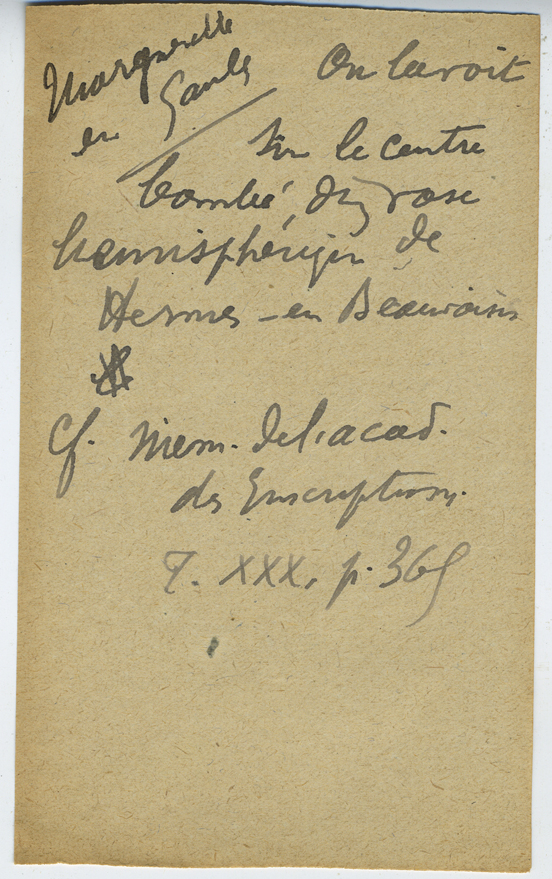 Marguerite
en Gaule
On la voit
sur le centre
bombé du vase
hémisphérique de
Hermes - en Beauvaisis
Cf. Mem. de l'acad.
des Inscriptions.
T. XXX, p. 365